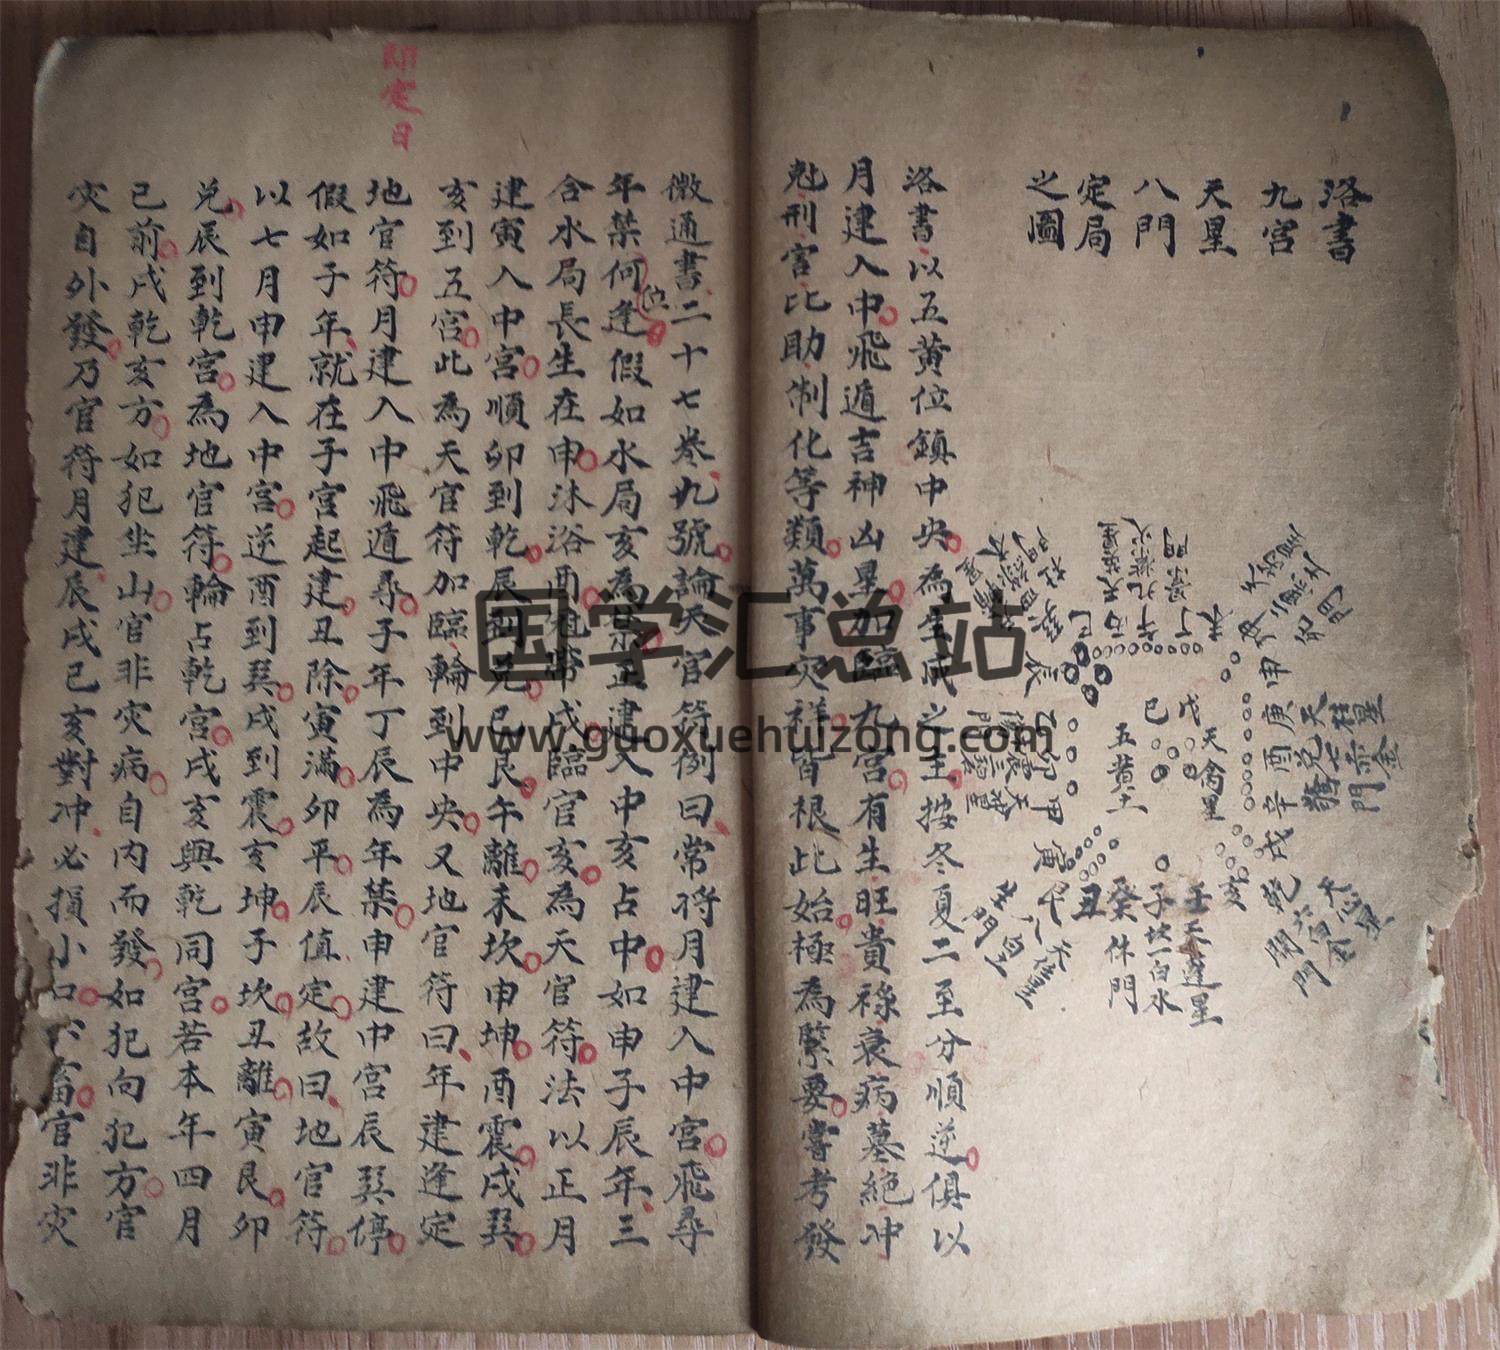 洛書
九宮
天星
八門
定局
之圖
未
丁
午
丙
巳
辰
乙
卯
甲
寅
艮
丑
癸
子
壬
亥
乾
戌
辛
酉
庚
申
戊
己
五黃土
天禽星
天英星
九紫火
景門
天柱星
兌七赤金
驚門
天心星
開門
天蓬星
坎一白水
休門
天任星
生門
洛書以五黃位鎮中央為生成之主按冬夏二至分順逆俱以
月建入中飛遁吉神凶星加臨九宮有生旺貴祿衰病墓絕冲
尅刑害比助制化等類萬事灾祥皆根此始極為緊要嘗考發
微通書二十七卷九號論天官符例曰常將月建入中宮飛尋
年禁何位逢假如水局亥為禁正建入中亥占中如申子辰年三
合水局長生在申沐浴酉冠帶戌臨官亥為天官符法以正月
建寅入中宮順卯到乾辰到兌巳艮午離未坎申坤酉震戌巽
亥到五宮此為天官符加臨輪到中央又地官符曰年建逢定
地官符月建入中飛遁尋子年丁辰為年禁申建中宮辰巽停
即定日
假如子年就在子宮起建丑除寅滿卯平辰值定故曰地官符
以七月申建入中宮逆酉到巽戌到震亥坤子坎丑離寅艮卯
兌辰到乾宮為地官符輪占乾宮戌亥與乾同宮若本年四月
已前戌乾亥方如犯坐山官非灾病自内而發如犯向犯方官
灾自外發乃官符月建辰戌巳亥對冲必損小口六畜官非灾
国学汇总站
www.guoxuehuizong.com